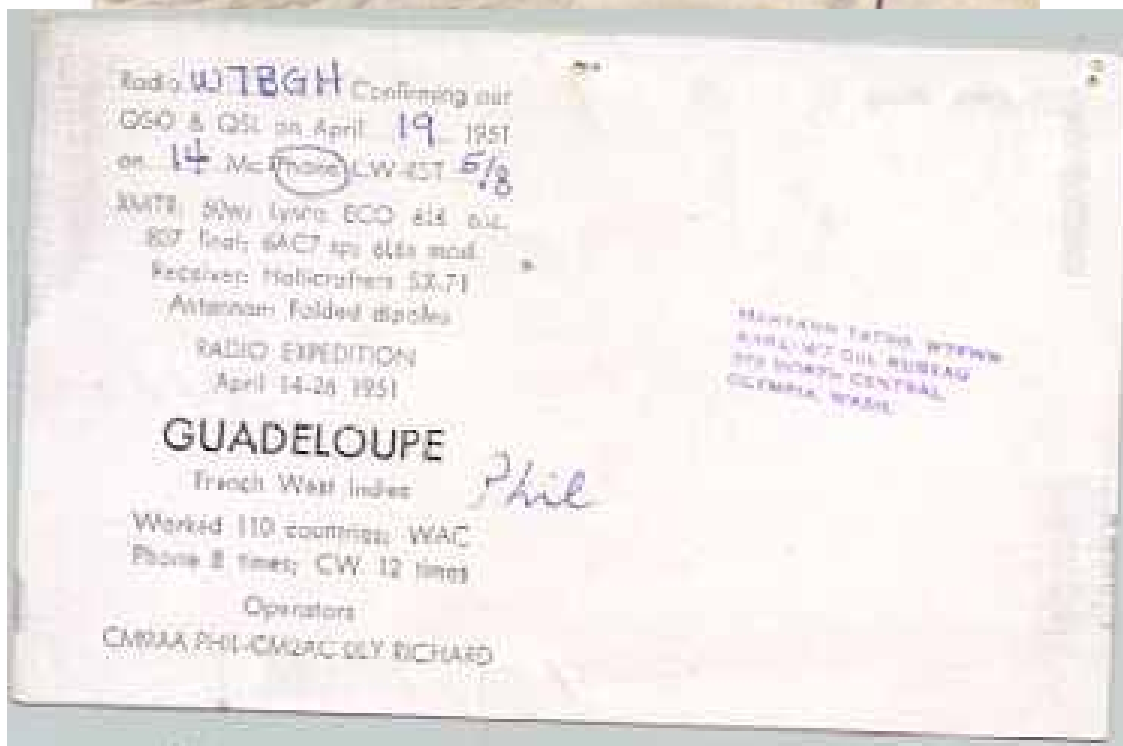 Radio W7BGH Confirming our
QSO & QSL on April 19 1951
on 14 Mc Phone CW-RST 5/8
XMTR: ECO
807 final; 6AC7 6L6s mod.
Receiver: Hallicrafters SX-71
Antennas: Folded dipoles
RADIO EXPEDITION
April 14-26 1951
GUADELOUPE
French West Indies
Phil
Worked 110 countries; WAC
Phone 8 times; CW 12 times
Operators
PHIL-CM2AC RICHARD
QSL BUREAU
NORTH CENTRAL
OLYMPIA, WASH.